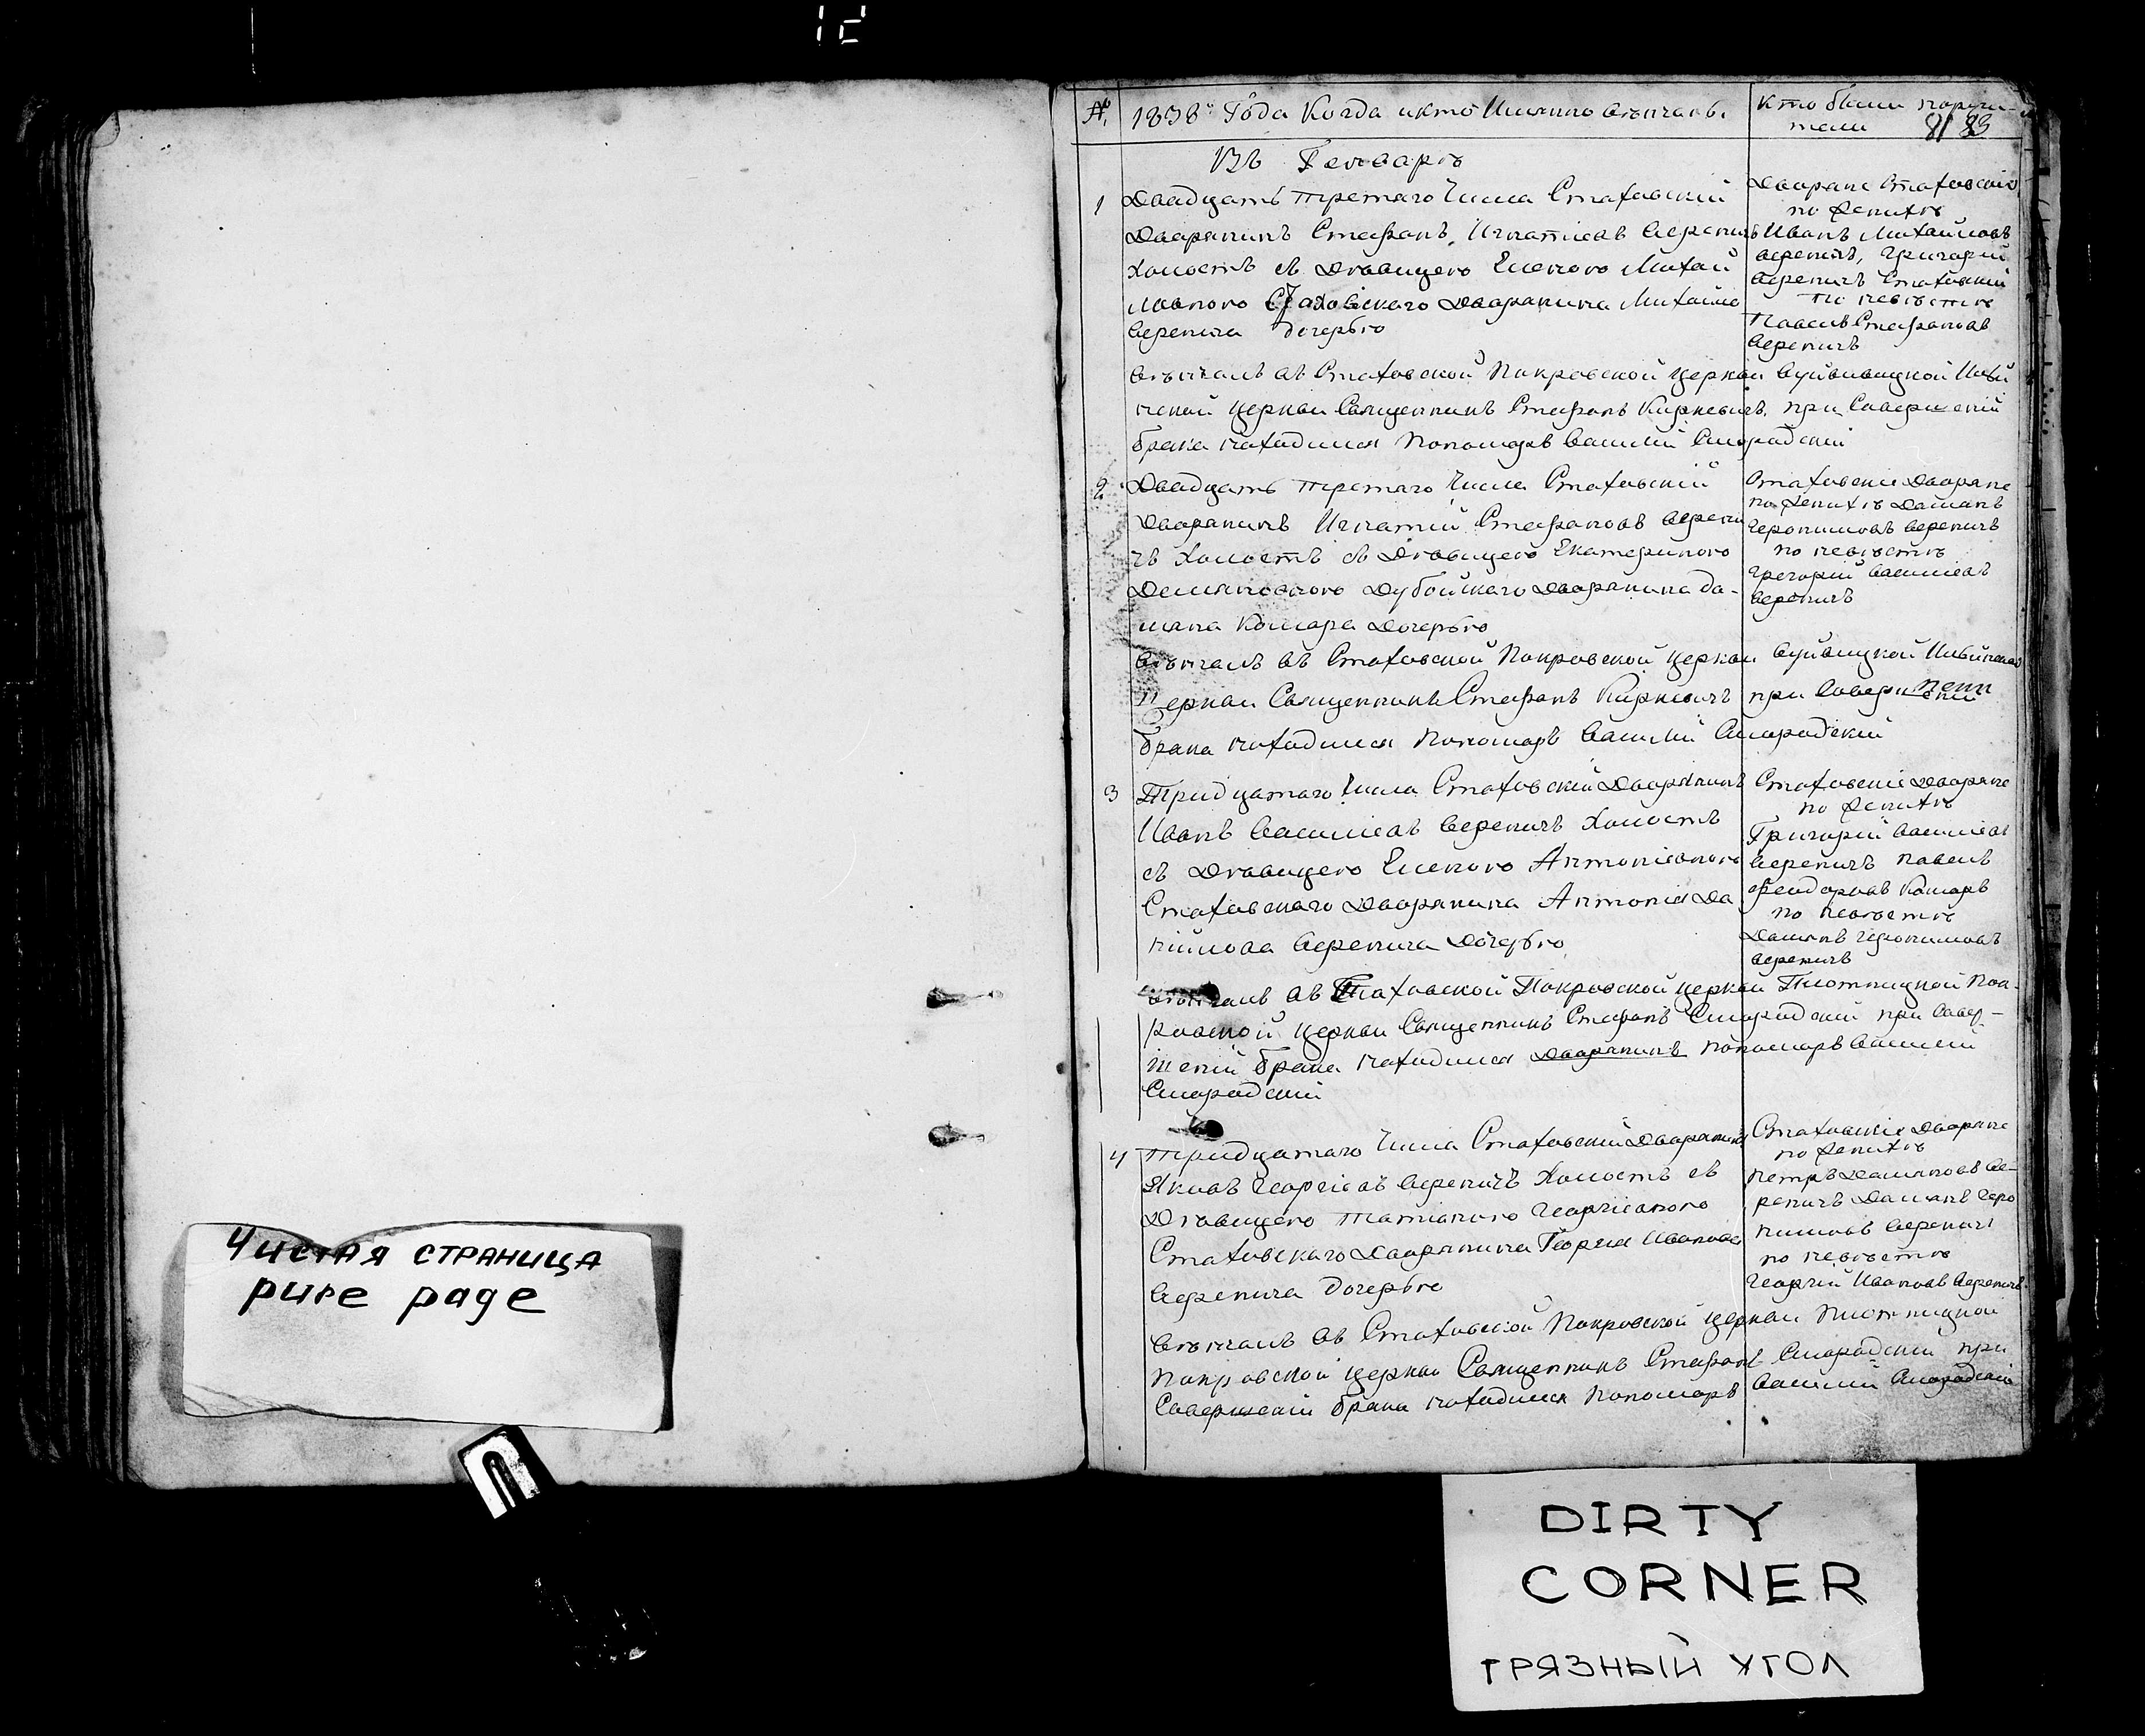 Чистая страница
pure page
№ 1838го Года Когда икто Имянно венчанъ.
Кто были поручи-
тели 81 83
Въ Генваре
1 Двадцать третаго Числа Стаховскій
Дворянинъ Стефанъ Игнатіевъ Вереничъ
Холостъ съ Девицею Еленою Михай
ловною Стаховскаго Дворянина Михаила
Веренича дочерью
Дворяне Стаховскіе
по Женихе
Иванъ Михайловъ
Вереничъ, Григорій
Вереничъ Стаховскій
по невесте
Павелъ Стефановъ
Вереничъ
Венчалъ въ Стаховской Покровской церкви Вуйвицкой
церкви Священникъ Стефанъ Киркевичъ, при Совершеніи
брака находился Пономаръ Василій Смородскій
2 Двадцать третаго Числа Стаховскій
Дворянинъ Игнатій Стефановъ Верени
чъ Холостъ съ Девицею Екатериною
Демяновною Дубойскаго Дворянина Да-
мяна Комара Дочерью
Стаховскіе Дворяне
по Женихе Дамянъ
Иеронимовъ Вереничъ
по невесте
Григорій Василіевъ
Вереничъ
Венчалъ въ Стаховской Покровской церкви Вуйвицкой
Церкви Священникъ Стефанъ Киркевичъ при Совершеніи
брака находился Пономаръ Василій Смородскій
3 Тридцатаго Числа Стаховскій Дворянинъ
Иванъ Василіевъ Вереничъ Холостъ
съ Девицею Еленою Антоніевною
Стаховскаго Дворянина Антонія Да
ніилова Веренича Дочерью
Стаховскіе Дворяне
по Женихе
Григорій Василіевъ
Вереничъ Павелъ
Феодоровъ Комаръ
по невесте
Дамянъ Иеронимовъ
Вереничъ
Венчалъ въ Стаховской Покровской церкви Плотницкой Пок-
ровской церкви Священникъ Стефанъ Смородскій при Совер-
шеніи брака находился Дворянинъ Пономаръ Василій
Смородскій
4 Тридцатаго Числа Стаховскій Дворянинъ
Яковъ Георгіевъ Вереничъ Холостъ съ
Девицею Татіяною Георгіевною
Стаховскаго Дворянина Георгія Иванова
Веренича дочерью
Стаховскіе Дворяне
по Женихе
Петръ Дамяновъ Ве-
реничъ Дамянъ Иеро
нимовъ Вереничъ
по невесте
Георгій Ивановъ Вереничъ
Венчалъ въ Стаховской Покровской церкви Плотницкой
Покровской церкви Священникъ Стефанъ Смородскій при
Совершеніи брака находился Пономаръ Василій Смородскій
DIRTY
CORNER
ГРЯЗНЫЙ УГОЛ